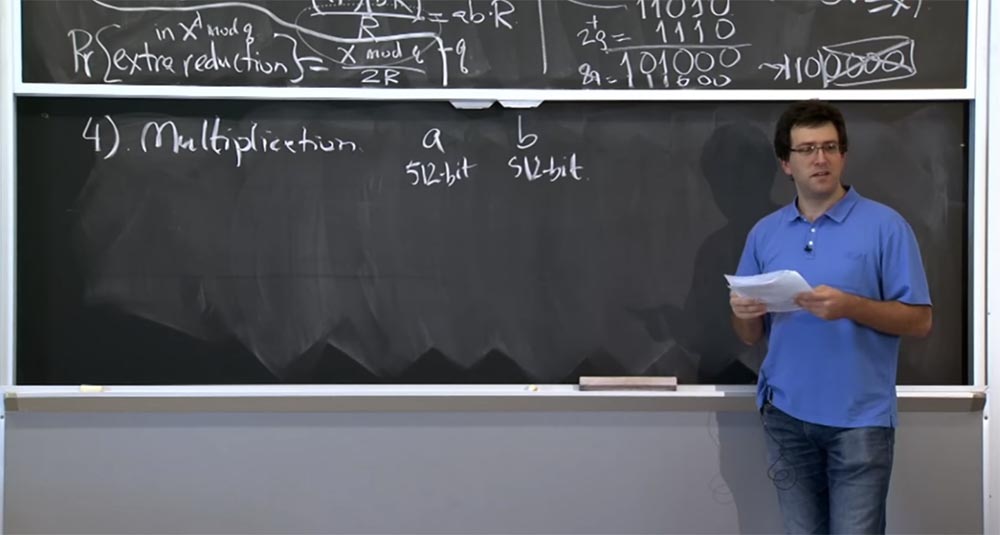 R = ab·R
Pr[extra reduction in X^d mod q] = X mod q / 2R
q
11010
2q = + 1110
101000
8q = 110000
→1100000
4). Multiplication. a b
512-bit 512-bit.